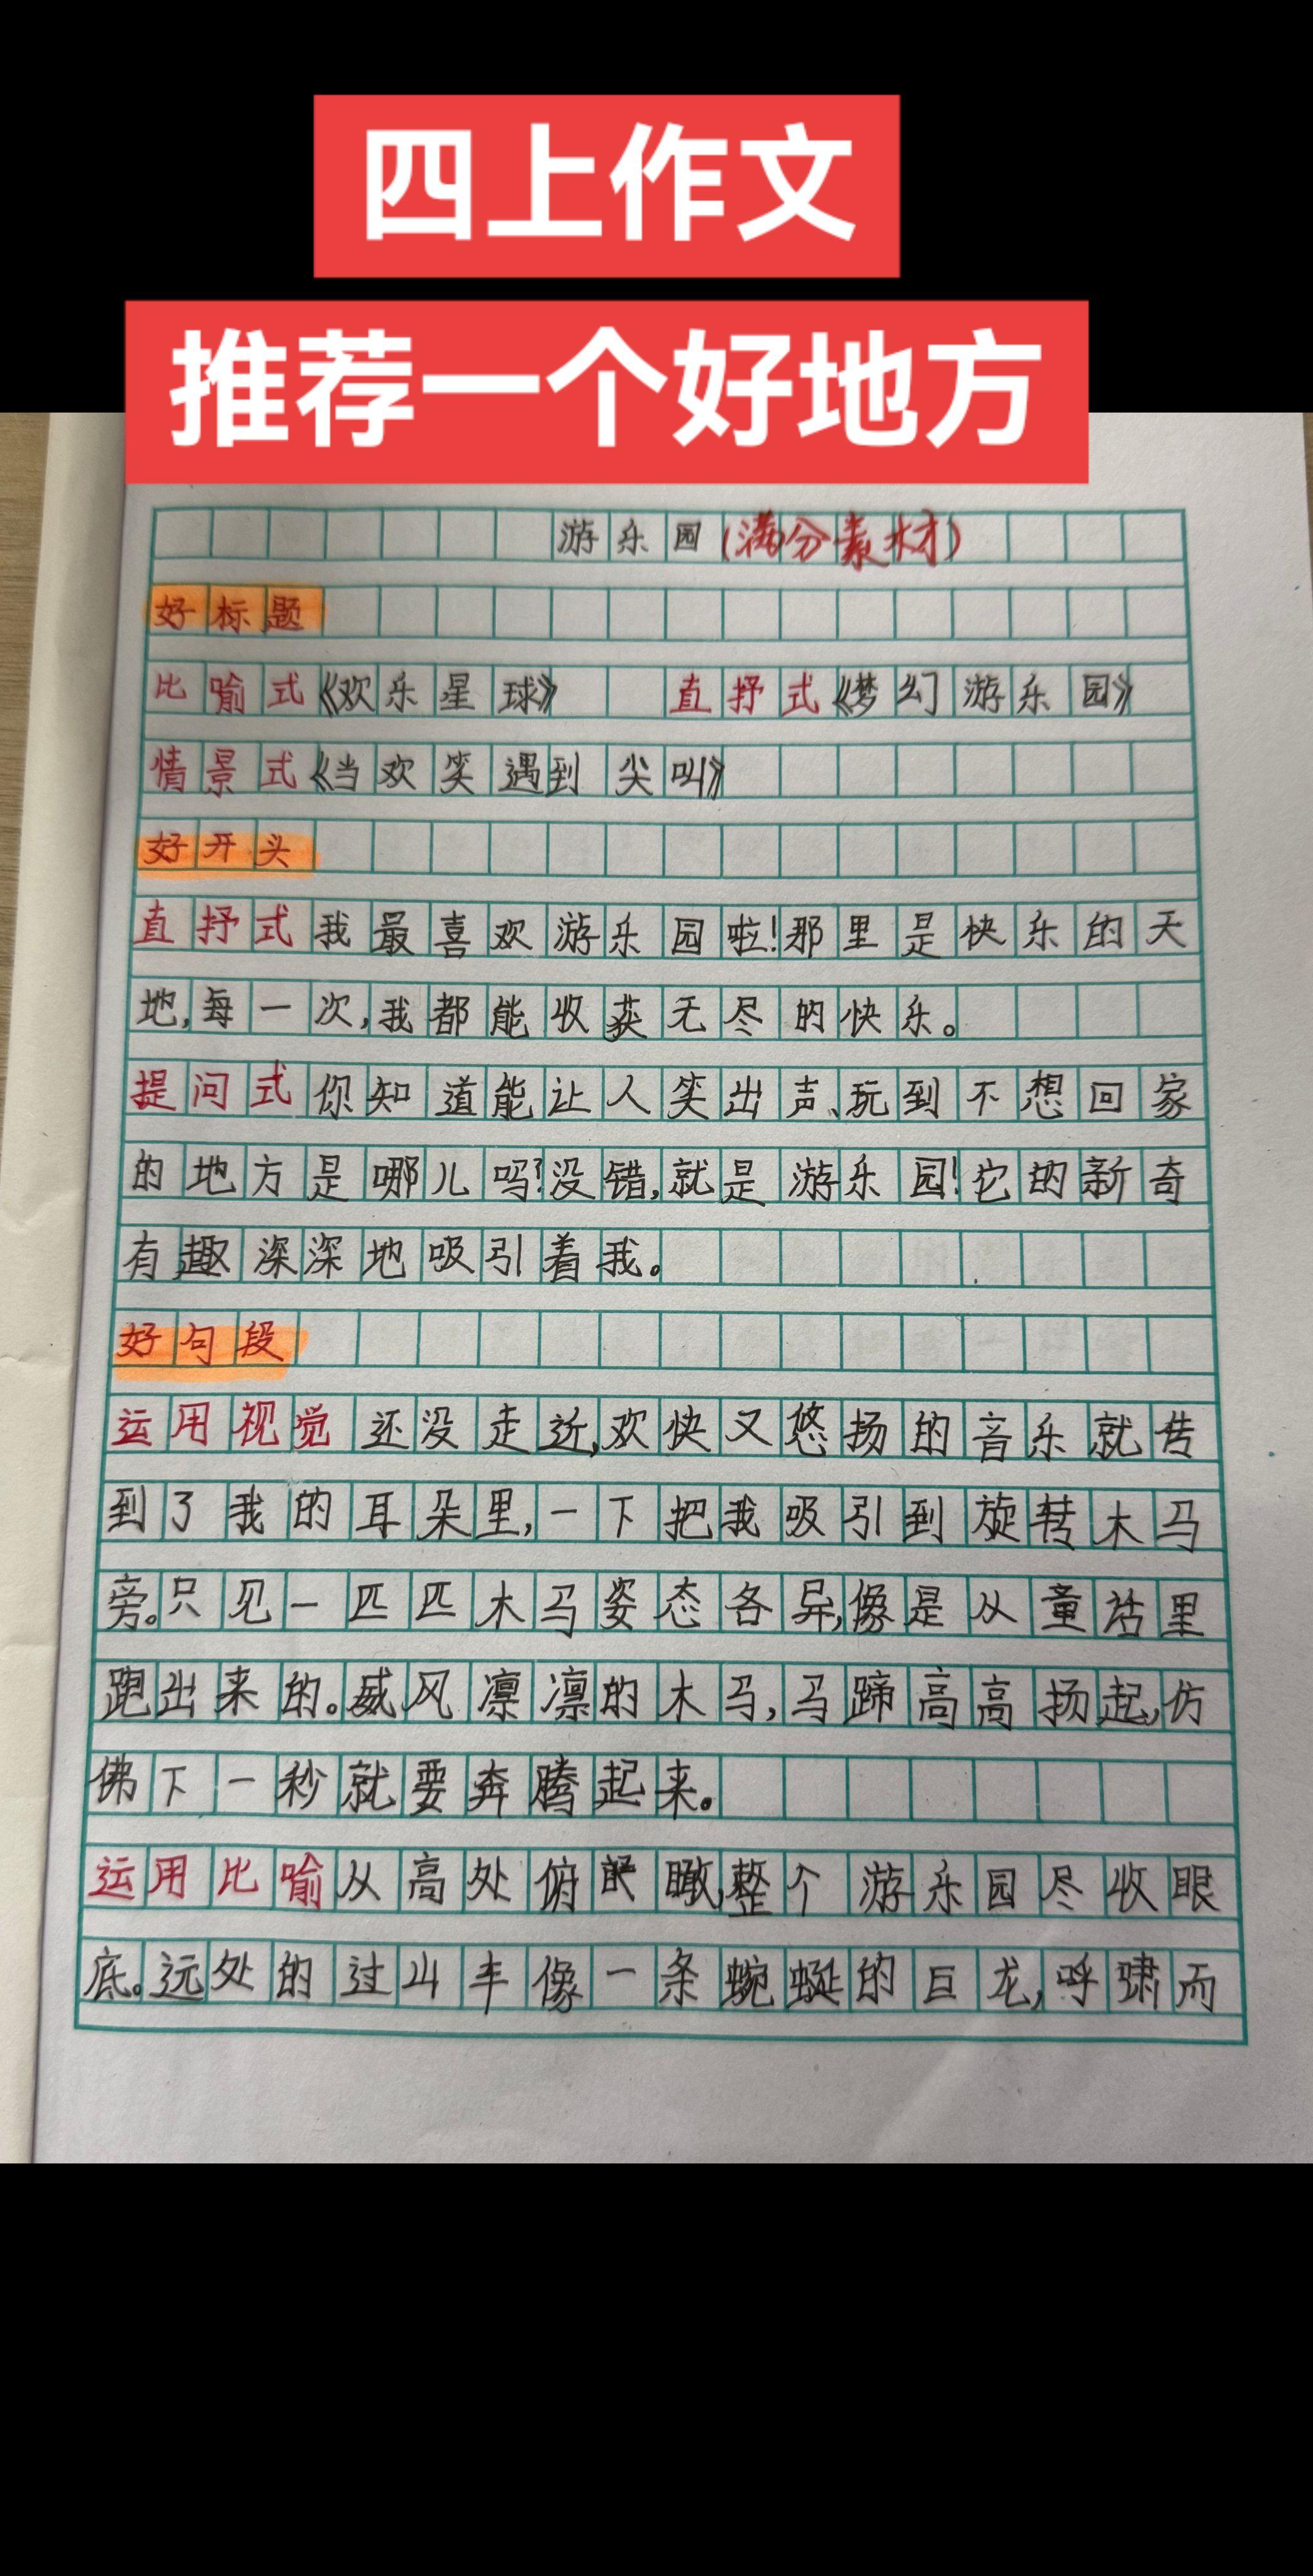 四上作文
推荐一个好地方
游乐园(满分素材)
好标题
比喻式《欢乐星球》 直抒式《梦幻游乐园》
情景式《当欢笑遇到尖叫》
好开头
直抒式我最喜欢游乐园啦!那里是快乐的天
地,每一次,我都能收获无尽的快乐。
提问式你知道能让人笑出声、玩到不想回家
的地方是哪儿吗?没错,就是游乐园!它的新奇
有趣深深地吸引着我。
好句段
运用视觉 还没走近,欢快又悠扬的音乐就传
到了我的耳朵里,一下把我吸引到旋转木马
旁。只见一匹匹木马姿态各异,像是从童话里
跑出来的。威风凛凛的木马,马蹄高高扬起,仿
佛下一秒就要奔腾起来。
运用比喻从高处俯瞰,整个游乐园尽收眼
底。远处的过山车像一条蜿蜒的巨龙,呼啸而